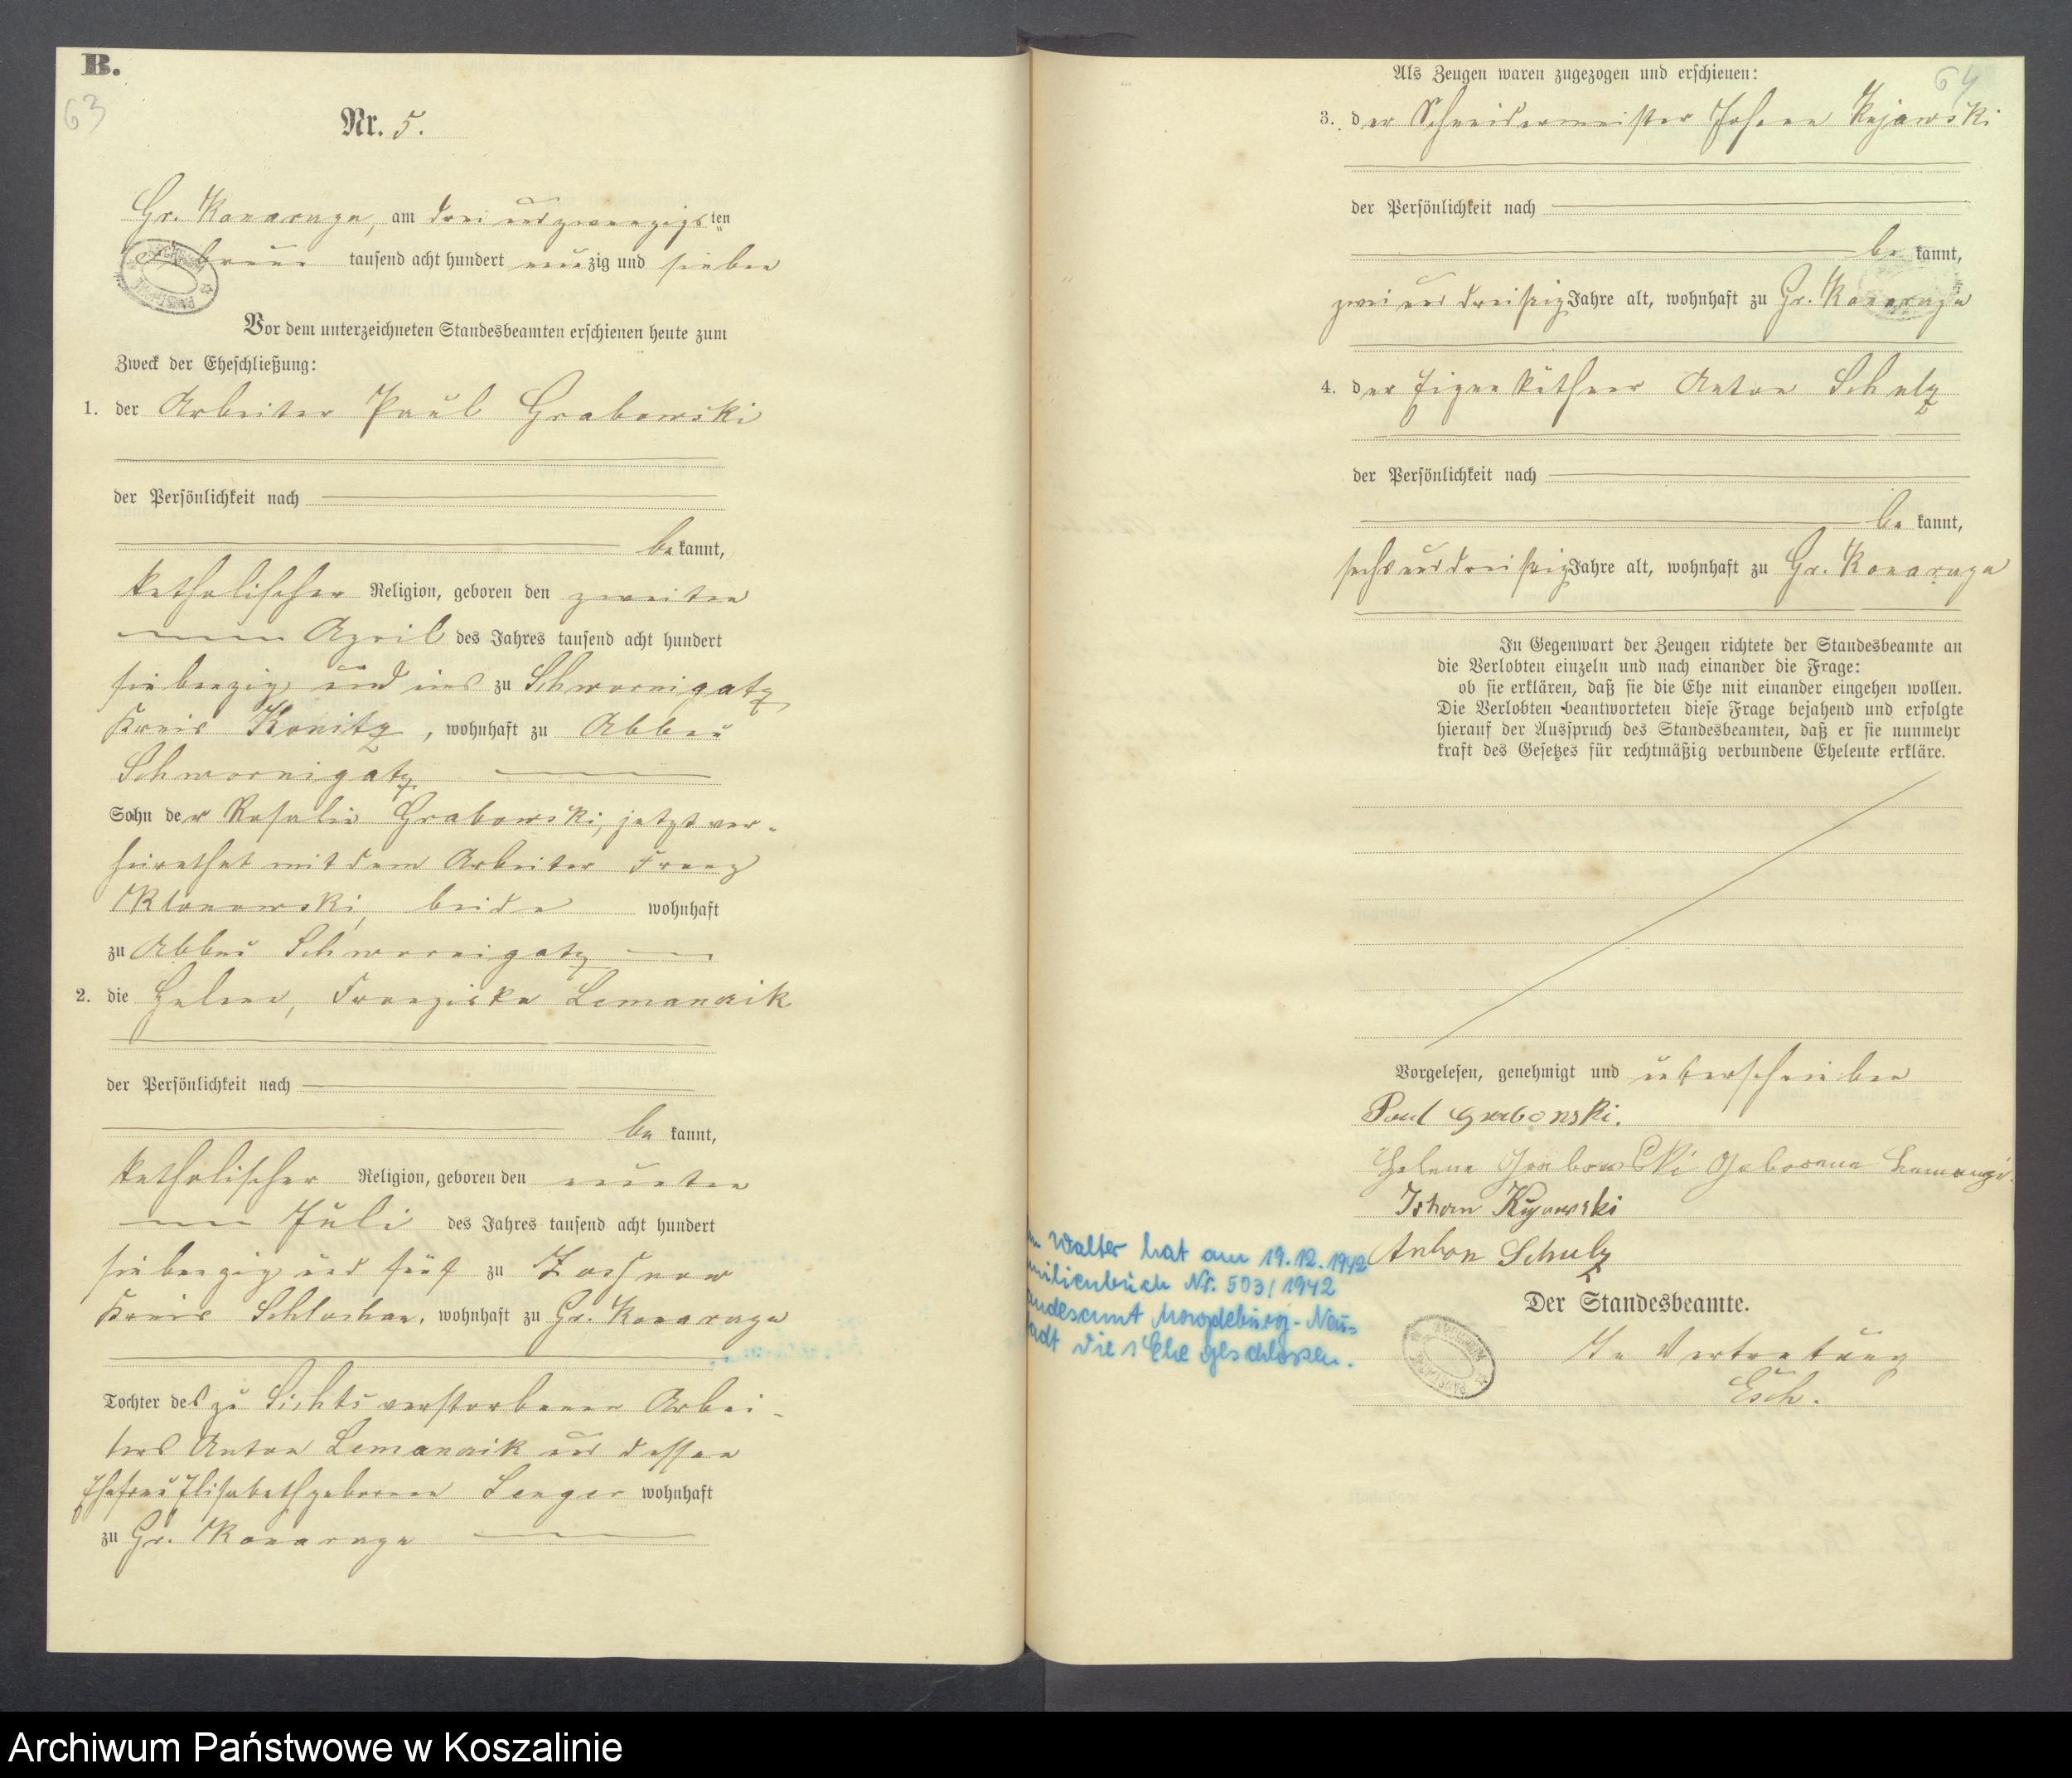 B.
63
Nr. 5.
Gr. Konarzyn, am drei und zwanzigsten
Februar tausend acht hundert neunzig und sieben
Vor dem unterzeichneten Standesbeamten erschienen heute zum
Zweck der Eheschließung:
1. der Arbeiter Paul Grabowski
der Persönlichkeit nach
bekannt,
katholischer Religion, geboren den zweiten
April des Jahres tausend acht hundert
siebenzig und eins zu Schwornigatz
Kreis Konitz, wohnhaft zu Abbau
Schwornigatz
Sohn der Rosalie Grabowski, jetzt ver-
heirathet mit dem Arbeiter Franz
Klonowski, beide wohnhaft
zu Abbau Schwornigatz
2. die Helene, Franziska Lemanczik
der Persönlichkeit nach
bekannt,
katholischer Religion, geboren den neunten
Juli des Jahres tausend acht hundert
siebenzig und fünf zu
Kreis Schlochau, wohnhaft zu Gr. Konarzyn
Tochter des zu verstorbenen Arbei-
ters Anton Lemanczik und dessen
Ehefrau Elisabeth geborenen Senger wohnhaft
zu Gr. Konarzyn
64
Als Zeugen waren zugezogen und erschienen:
3. der Schneidermeister Johann Kujawski
der Persönlichkeit nach
bekannt,
zwei und dreißig Jahre alt, wohnhaft zu Gr. Konarzyn
4. der Eigenkäthner Anton Schulz
der Persönlichkeit nach
bekannt,
sechs und dreißig Jahre alt, wohnhaft zu Gr. Konarzyn
In Gegenwart der Zeugen richtete der Standesbeamte an
die Verlobten einzeln und nach einander die Frage:
ob sie erklären, daß sie die Ehe mit einander eingehen wollen.
Die Verlobten beantworteten diese Frage bejahend und erfolgte
hierauf der Ausspruch des Standesbeamten, daß er sie nunmehr
kraft des Gesetzes für rechtmäßig verbundene Eheleute erkläre.
Vorgelesen, genehmigt und unterschrieben
Paul Grabowski.
Helene Grabowski geborene
Johann Kujawski
Anton Schulz
Walter hat am 19.12.1942
Nr. 503/1942
Magdeburg-Neu=
die 1 Ehe geschlossen.
Der Standesbeamte.
In Vertretung
Esch.
Archiwum Państwowe w Koszalinie